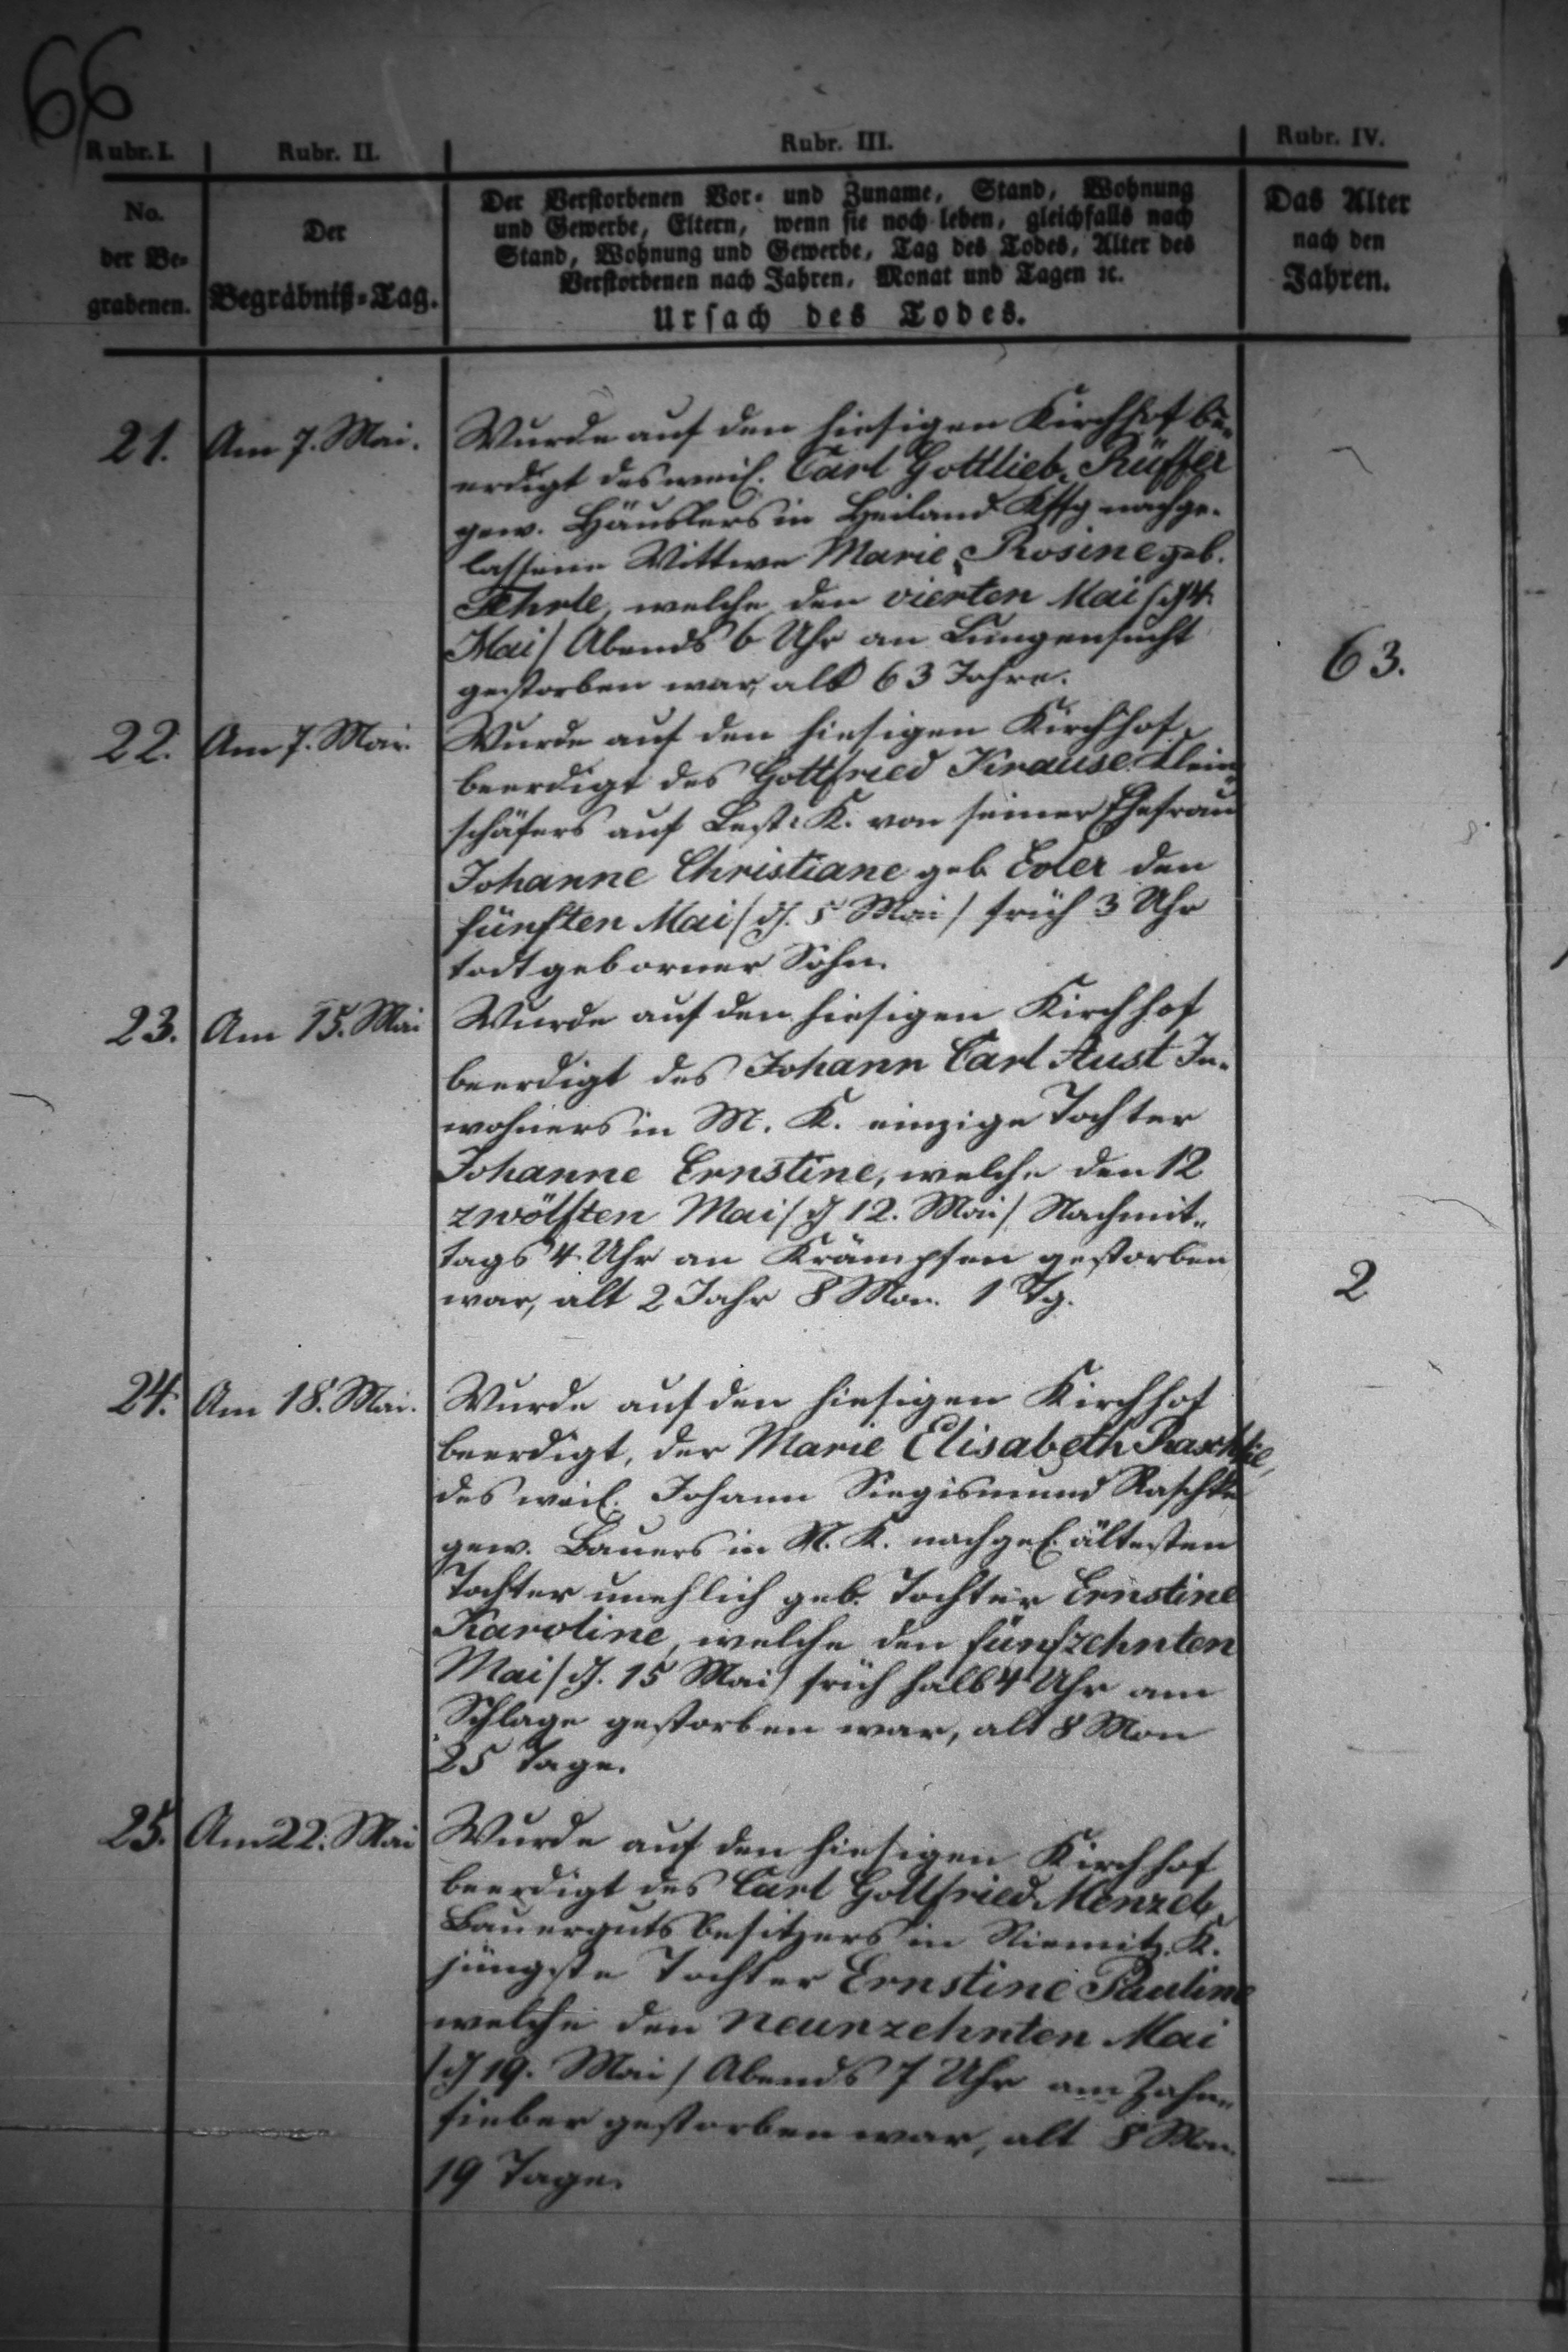 66
Rubr. I. Rubr. II. Rubr. III. Rubr. IV.
No. der Be- grabenen.
Der Begräbniß-Tag.
Der Verstorbenen Vor- und Zuname, Stand, Wohnung
und Gewerbe, Eltern, wenn sie noch leben, gleichfalls nach
Stand, Wohnung und Gewerbe, Tag des Todes, Alter des
Verstorbenen nach Jahren, Monat und Tagen ꝛc.
Ursach des Todes.
Das Alter
nach den
Jahren.
21. Am 7. Mai. Wurde auf den hiesigen Kirchhof be-
erdigt des weil. Carl Gottlieb Rüffer
gew. Häuslers in Heiland Kffg nachge-
lassene Wittwe Marie Rosine geb.
Fehrle, welche den vierten Mai /d 4.
Mai/ Abends 6 Uhr an Lungensucht
gestorben war, alt 63 Jahre. 63.
22. Am 7. Mai. Wurde auf den hiesigen Kirchhof
beerdigt des Gottfried Krause Klein-
schäfers auf Lest: K. von seiner Ehefrau
Johanne Christiane geb. Exler den
fünften Mai /d. 5 Mai/ früh 3 Uhr
todtgeborner Sohn.
23. Am 15. Mai Wurde auf den hiesigen Kirchhof
beerdigt des Johann Carl Aust In-
wohners in M. K. einzige Tochter
Johanne Ernstine, welche den 12
zwölften Mai /d 12. Mai/ Nachmit-
tags 4 Uhr an Krämpfen gestorben
war, alt 2 Jahr 8 Mon. 1 Tg. 2
24. Am 18. Mai. Wurde auf den hiesigen Kirchhof
beerdigt, der Marie Elisabeth Raschke,
des weil. Johann Siegismund Raschke
gew. Bauers in M. K. nachgel. ältesten
Tochter unehlich geb. Tochter Ernstine
Karoline, welche den fünfzehnten
Mai /d. 15 Mai/ früh halb 4 Uhr am
Schlage gestorben war, alt 8 Mon
25 Tage.
25. Am 22. Mai Wurde auf den hiesigen Kirchhof
beerdigt des Carl Gottfried Menzel,
Bauergutsbesitzers in Niemitz. K.
jüngste Tochter Ernstine Pauline
welche den neunzehnten Mai
/d 19. Mai/ Abends 7 Uhr am Zahn-
fieber gestorben war, alt 8 Mon.
19 Tage.